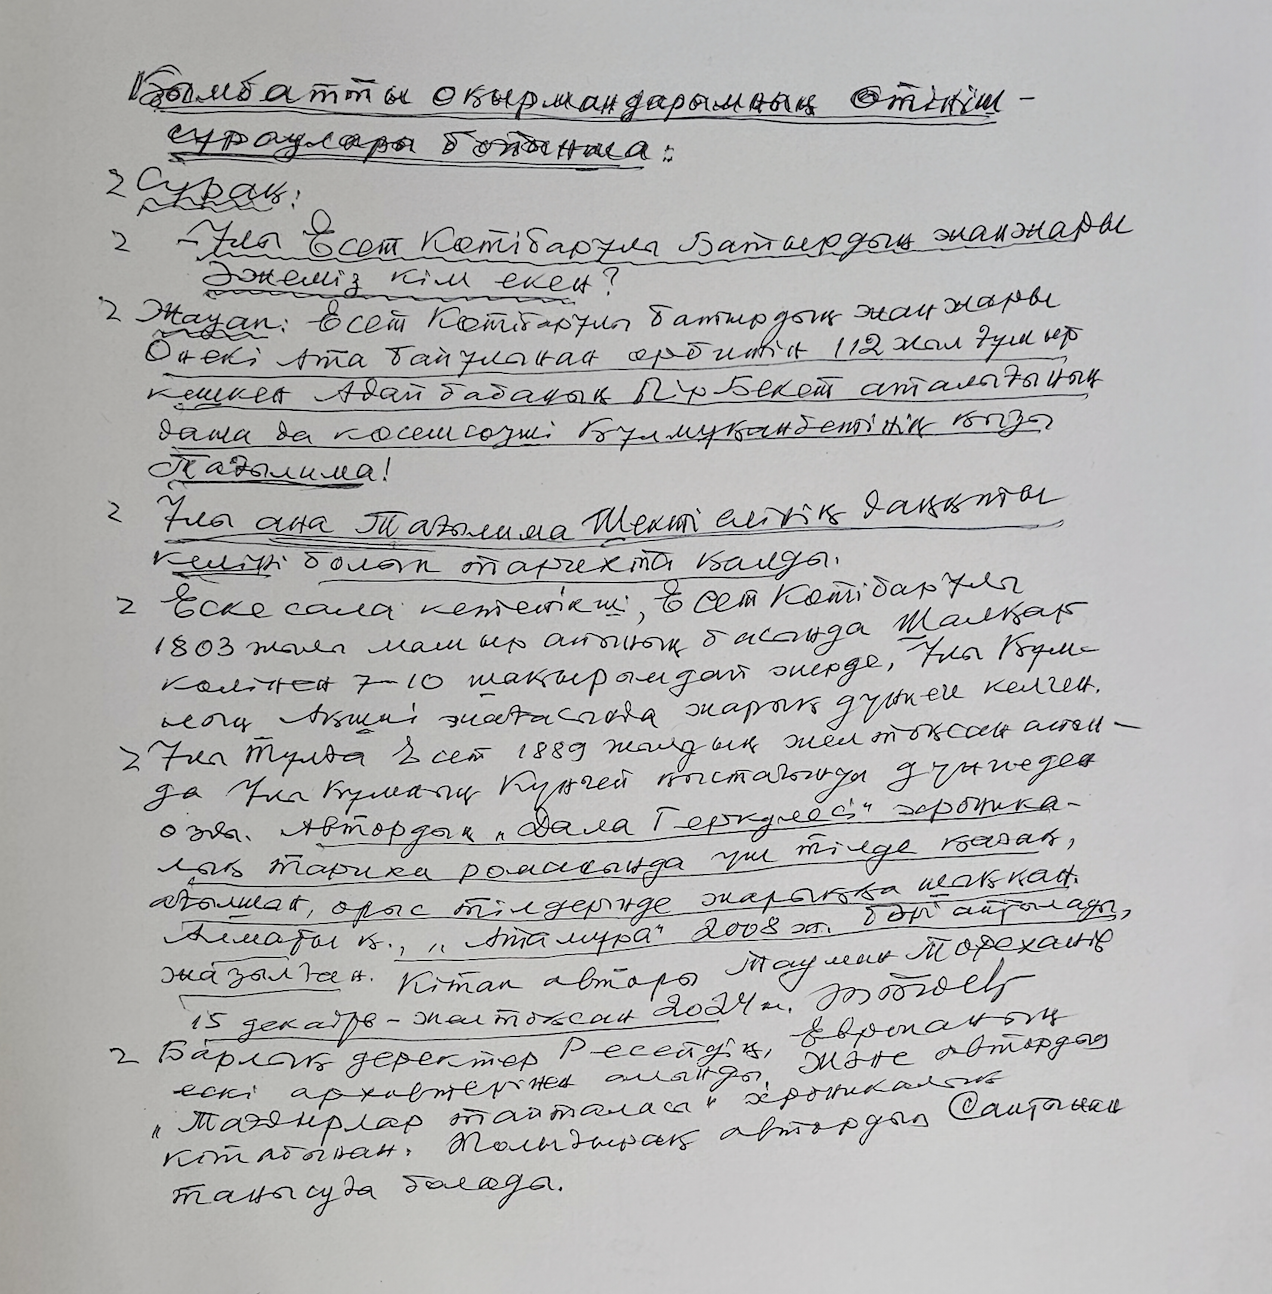 Қымбатты оқырмандарымның өтініш-
сураулары бойынша:
Сурақ:
- Ұлы Есет Көтібарұлы Батырдың жанжары
Әжеміз кім екен?
Жауап: Есет Көтібарұлы батырдың жанжары
Онекі Ата байұлынан өрбитін 112 жыл ғұмыр
кешкен Адай бабаның Пір Бекет аталығының
даша да көсемсөзші Құлмұқанбетінің қызы
Тағылима!
Ұлы ана Тағылима Шекті елінің даңқты
келіні болып тарихта қалды.
Еске сала кетейікші, Есет Көтібарұлы
1803 жылы мамыр айының басында Шалқар
көлінен 7-10 шақырымдай жерде, Ұлы Құм-
ның Ақши жағасында жарық дүниеге келген.
Ұлы Тұлға Есет 1889 жылдың желтоқсан айын-
да Ұлы Құмның Күнгей қыстағында дүниеден
озды. Автордың „Дала Геркулесі" хроника-
лық тарихи романында үш тілде қазақ,
ағылшын, орыс тілдерінде жарыққа шыққан.
Алматы қ., „Атамұра" 2008 ж. бәрі айтылады,
жазылған. Кітап авторы Тауман Төреханов
15 декабрь-желтоқсан 2024 ж.
Барлық деректер Ресейдің, Европаның
ескі архивтерінен алынды, Және автордың
„Тағдырлар тайталасы" хроникалық
кітабынан. Толығырақ автордың Сайтынан
танысуға болады.